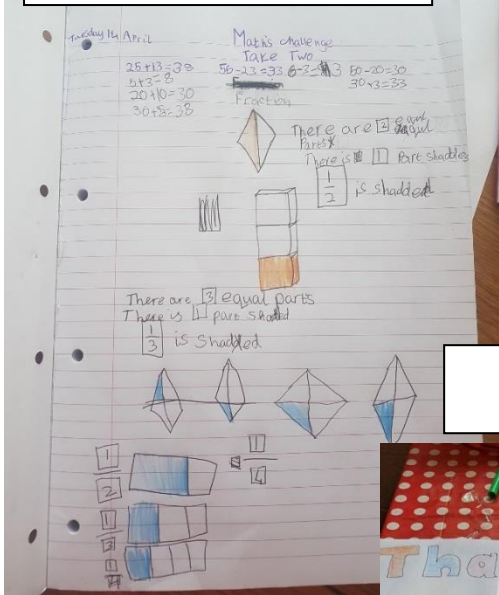 Tuesday 14 April
Maths challenge
Take Two
25+13=38 50-23=33 6-3=3 50-20=30
5+3=8 30+3=33
20+10=30
30+8=38
Fraction
There are 2 equal
Parts
There is 1 Part shadded
1
2
is shadded
There are 3 equal parts
There is 1 part shadded
1
3
is shadded
1
2
1
4
1
3
1
4
Tha